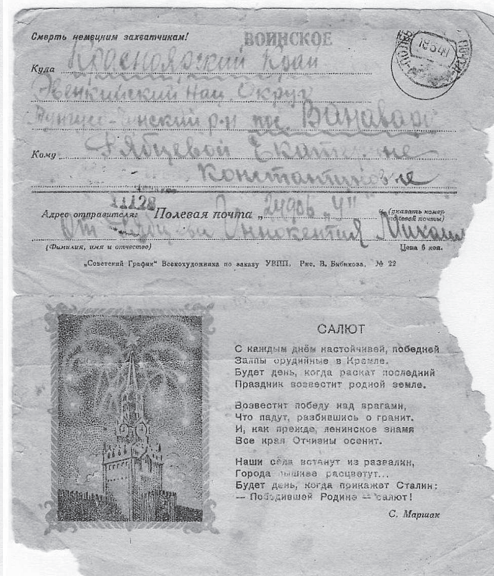 Смерть немецким захватчикам!
ВОИНСКОЕ
Куда Красноярский край
Эвенкийский Нац Округ
р-н Ванавара
Кому Рябцевой Екатерине
Константиновне
11128
Адрес отправителя: Полевая почта „ "
(указать номер полевой почты)
От Иннокентия Михаил
(Фамилия, имя и отчество) Цена 5 коп.
„Советский График" Всекохудожника по заказу УВПП. Рис. В. Бибикова. № 22
САЛЮТ
С каждым днём настойчивей, победней
Залпы орудийные в Кремле.
Будет день, когда раскат последний
Праздник возвестит родной земле.
Возвестит победу над врагами,
Что падут, разбившись о гранит.
И, как прежде, ленинское знамя
Все края Отчизны осенит.
Наши сёла встанут из развалин,
Города пышнее расцветут...
Будет день, когда прикажет Сталин:
— Победившей Родине — салют!
С. Маршак